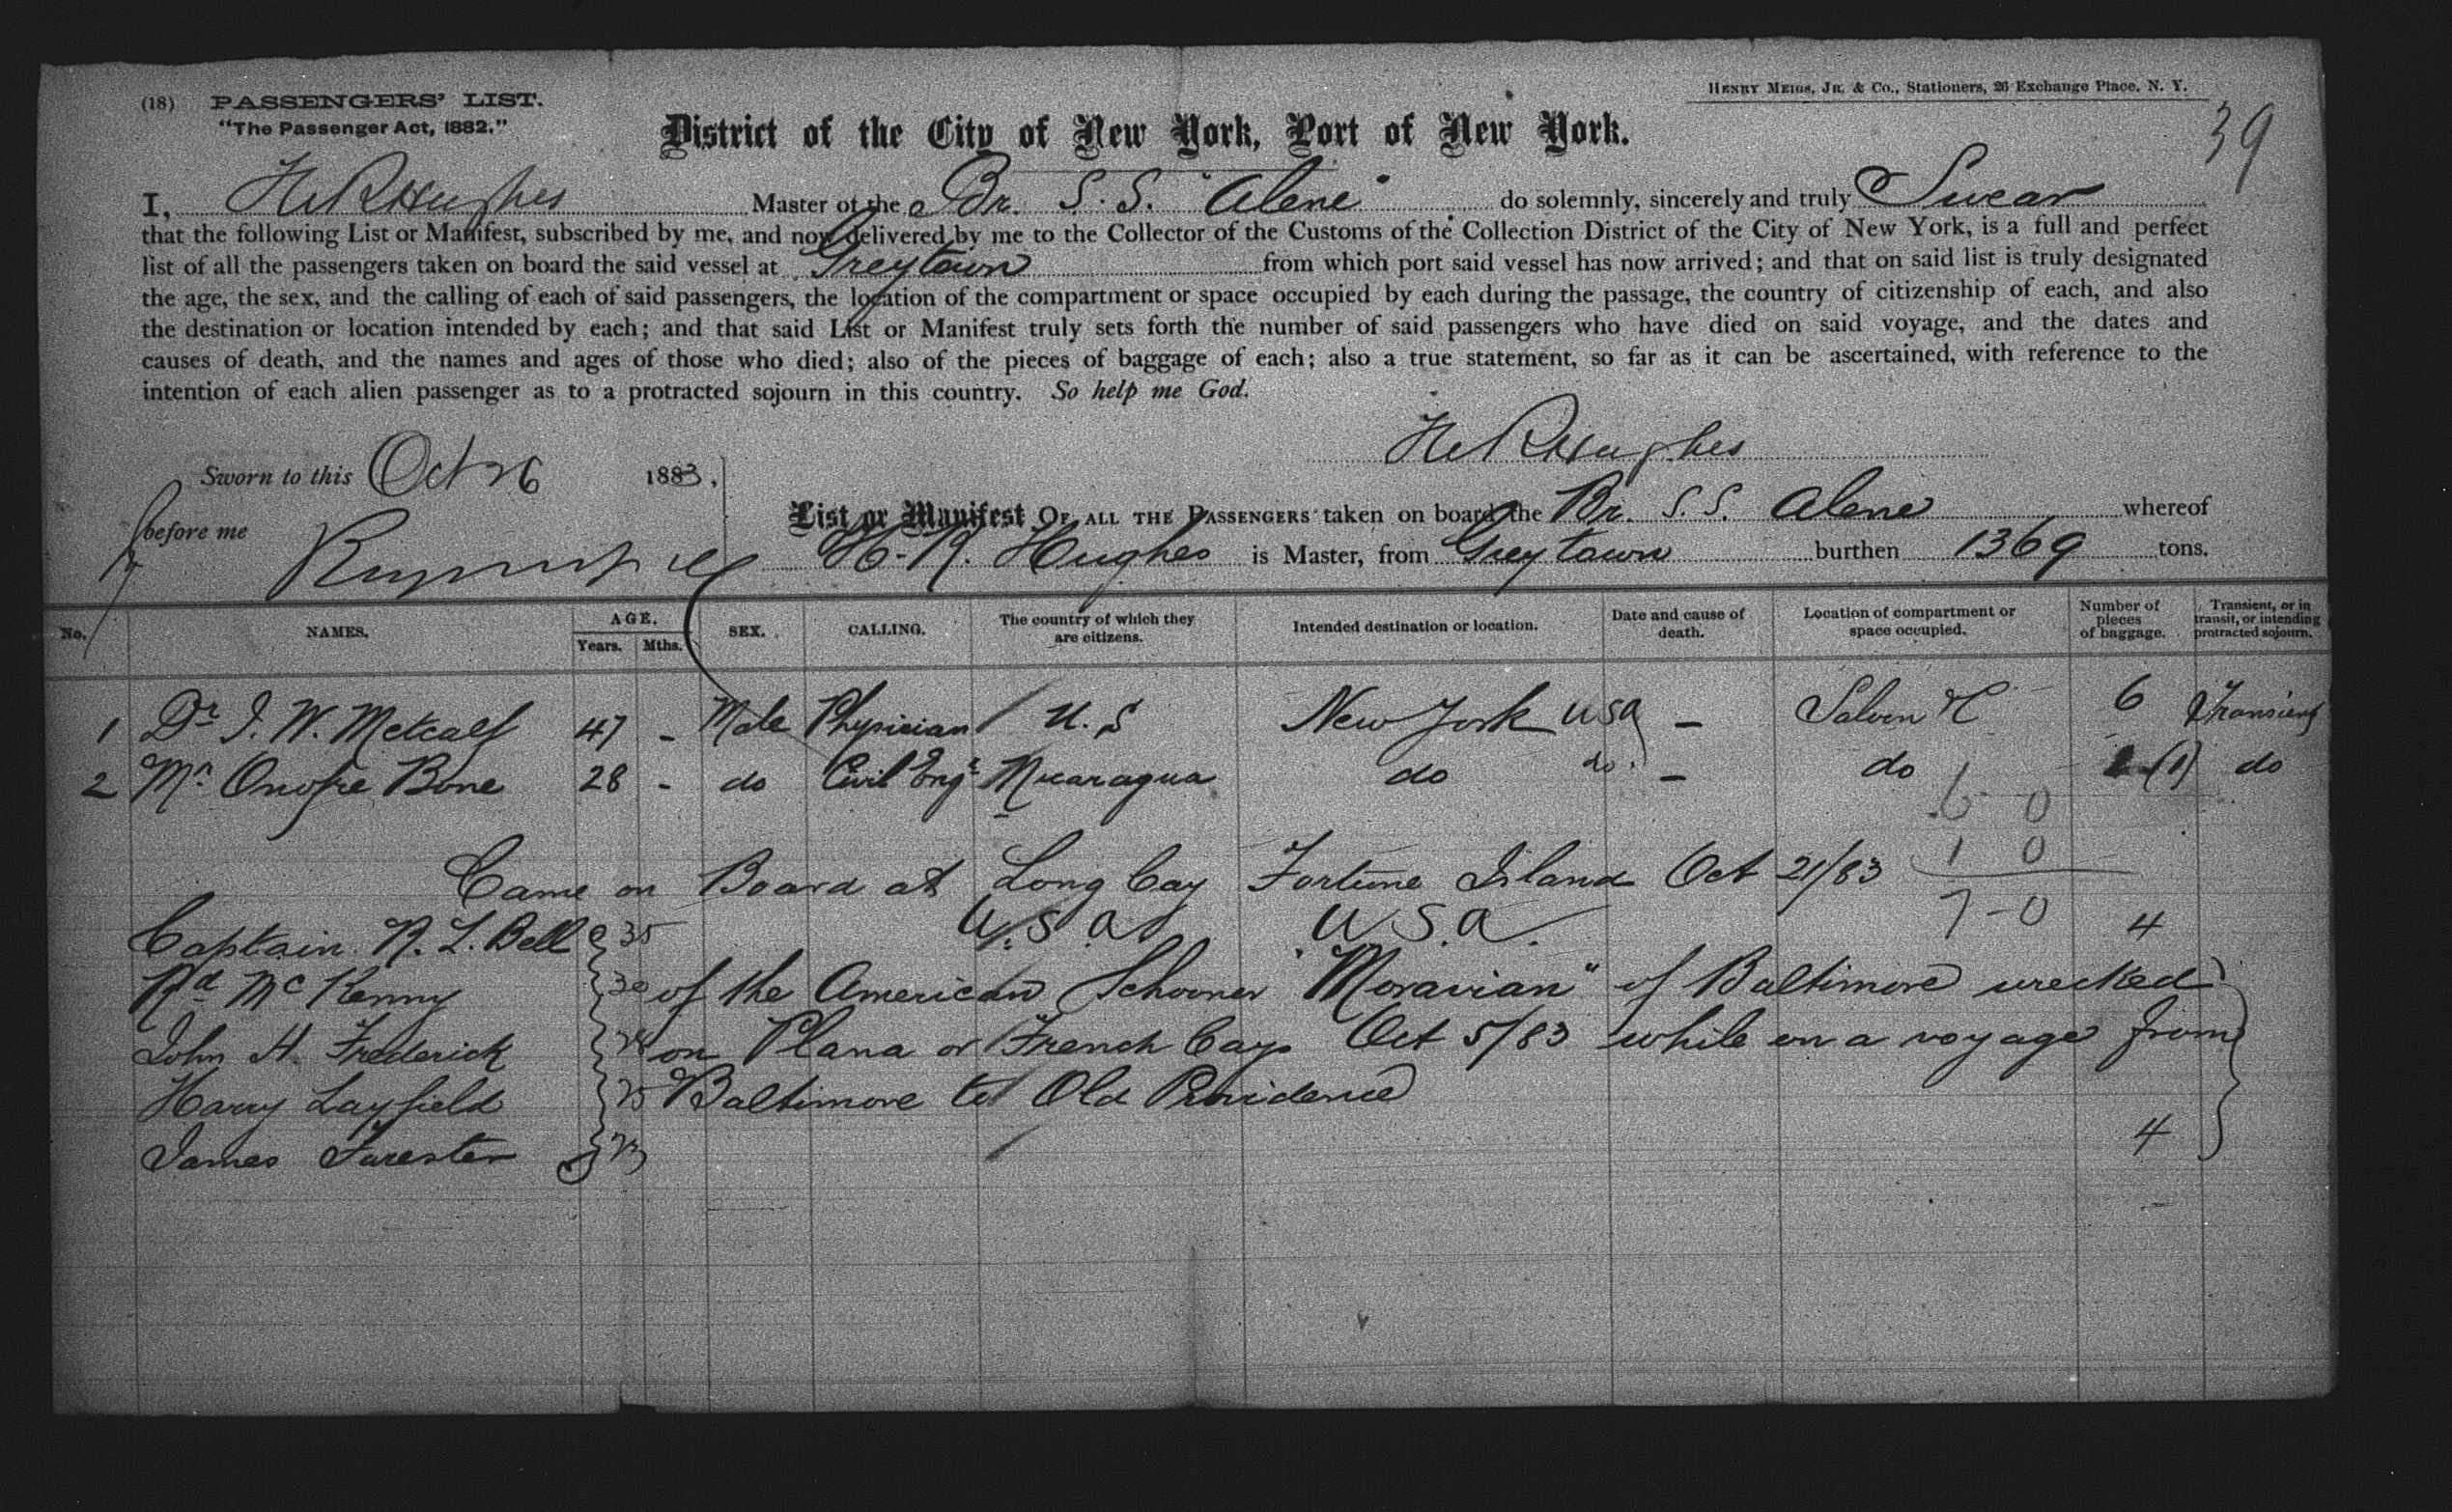 (18) PASSENGERS' LIST.
"The Passenger Act, 1882."
HENRY MEIGS, JR. & CO., Stationers, 26 Exchange Place, N. Y.
39
District of the City of New York, Port of New York.
I, H R Hughes Master of the Br. S. S. "Alene" do solemnly, sincerely and truly Swear
that the following List or Manifest, subscribed by me, and now delivered by me to the Collector of the Customs of the Collection District of the City of New York, is a full and perfect
list of all the passengers taken on board the said vessel at Greytown from which port said vessel has now arrived; and that on said list is truly designated
the age, the sex, and the calling of each of said passengers, the location of the compartment or space occupied by each during the passage, the country of citizenship of each, and also
the destination or location intended by each; and that said List or Manifest truly sets forth the number of said passengers who have died on said voyage, and the dates and
causes of death, and the names and ages of those who died; also of the pieces of baggage of each; also a true statement, so far as it can be ascertained, with reference to the
intention of each alien passenger as to a protracted sojourn in this country. So help me God.
H R Hughes
Sworn to this Oct 26 1883,
before me
List or Manifest OF ALL THE PASSENGERS taken on board the Br. S. S. Alene whereof
H. R. Hughes is Master, from Greytown burthen 1369 tons.
No. NAMES. AGE. Years. Mths. SEX. CALLING. The country of which they are citizens. Intended destination or location. Date and cause of death. Location of compartment or space occupied. Number of pieces of baggage. Transient, or in transit, or intending protracted sojourn.
1 Dr I. W. Metcalf 47 - Male Physician U. S New York USA - 6 Transient
2 Mr Onofre Bone 28 - do Civil Engr Nicaragua do do. - do (1) do
6 0
1 0
Came on Board at Long Cay Fortune Island Oct 21/83
7-0
Captain R. L. Bell 35 U. S. a U S. a. 4
Rd Mc Kenny 30 of the American Schooner "Moravian" of Baltimore wrecked
John H. Frederick on Plana or French Cays Oct 5/83 while on a voyage from
Harry Layfield 25 Baltimore to Old Providence
James Forester 23 4